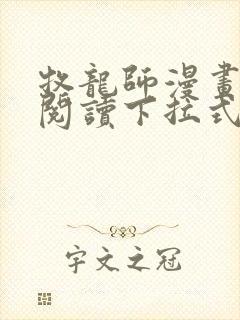 牧龍師漫畫
閱讀下拉式
宇文之冠